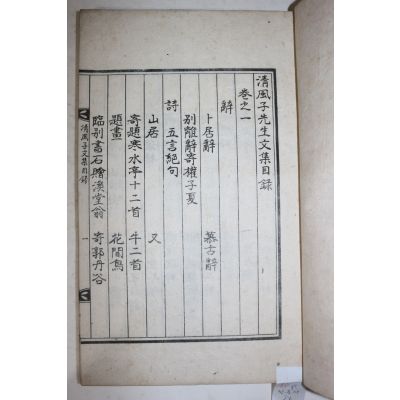 清風子先生文集目録
卷之一
辭
卜居辭　慕古辭
別離辭寄權子夏
詩　五言絕句
山居　又
寄題寒水亭十二首　牛二首
題畫　花間鳥
臨別書石贈溪堂翁　寄郭丹谷
清風子文集目録　一